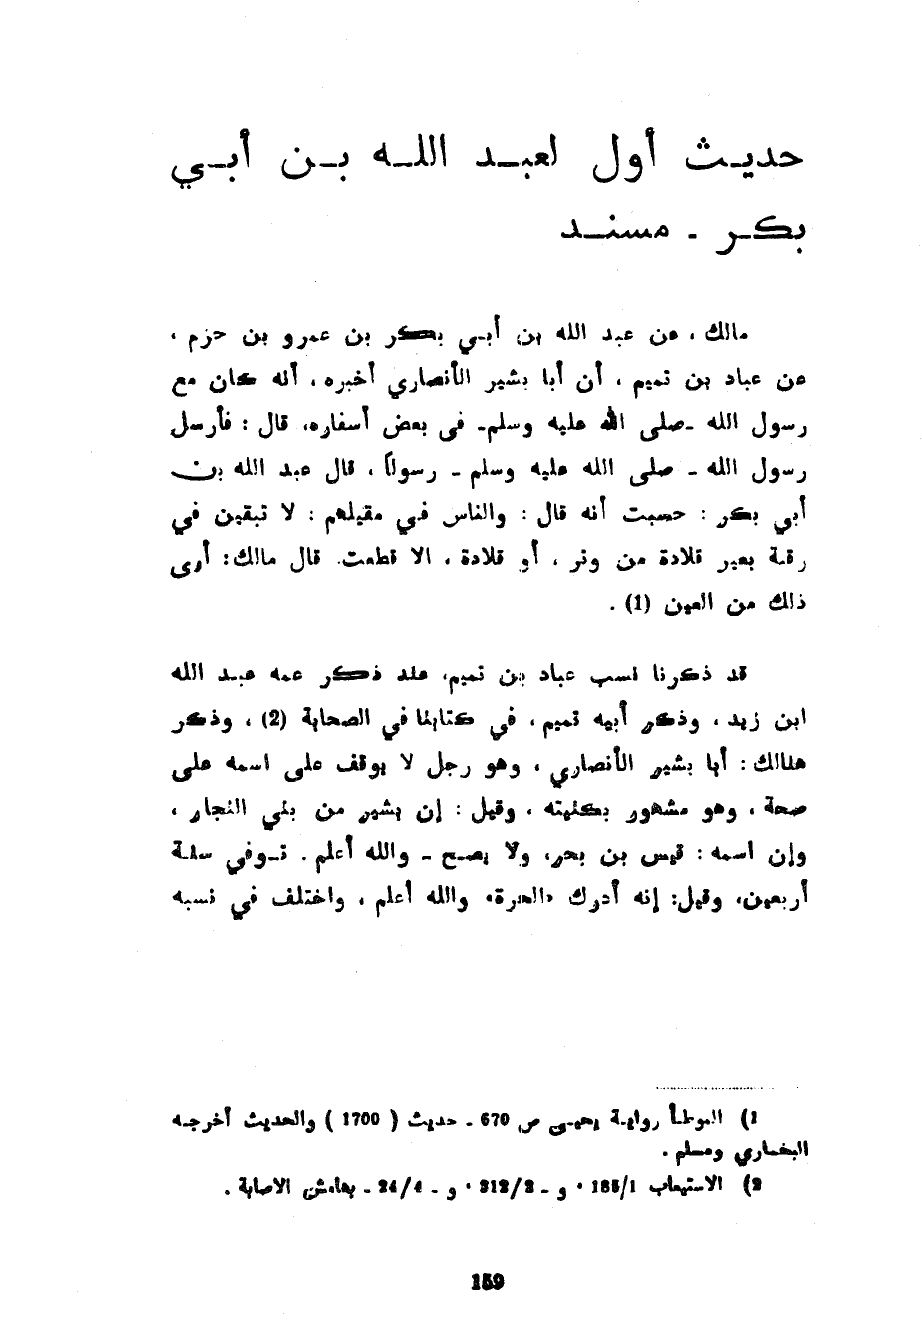 حديث أول لعبد الله بن أبي
بكر - مسند
مالك ، عن عبد الله بن أبي بكر بن عمرو بن حزم ،
عن عباد بن تميم ، أن أبا بشير الأنصاري أخبره ، أنه كان مع
رسول الله -صلى الله عليه وسلم- في بعض أسفاره، قال : فأرسل
رسول الله - صلى الله عليه وسلم - رسولاً ، قال عبد الله بن
أبي بكر : حسبت أنه قال : والناس في مقيلهم : لا تبقين في
رقبة بعير قلادة من وتر ، أو قلادة ، الا قطعت. قال مالك: أرى
ذلك من العين (1) .
قد ذكرنا نسب عباد بن تميم، عند ذكر عمه عبد الله
ابن زيد ، وذكر أبيه تميم ، في كتابنا في الصحابة (2) ، وذكر
هنالك : أبا بشير الأنصاري ، وهو رجل لا يوقف على اسمه على
صحة ، وهو مشهور بكنيته ، وقيل : إن بشير من بني النجار ،
وإن اسمه : قيس بن بحر، ولا يصح - والله أعلم . توفي سنة
أربعين، وقيل: إنه أدرك «الحرة» والله أعلم ، واختلف في نسبه
1) الموطأ رواية يحيى ص 670 - حديث ( 1700 ) والحديث أخرجه
البخاري ومسلم .
2) الاستيعاب 1/185 ، و - 2/312 ، و - 4/24 - بهامش الاصابة .
159